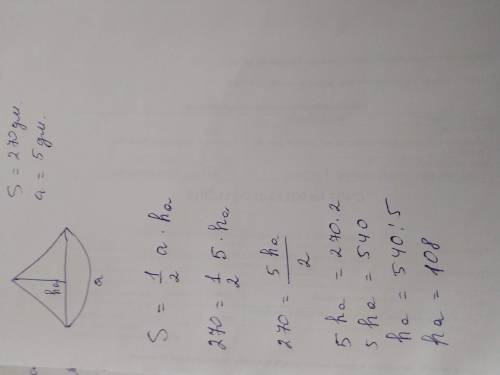 S = 270 дм.
a = 5 дм.
ha
a
S = 1/2 a · ha
270 = 1/2 5 · ha
270 = 5 ha / 2
5 ha = 270 · 2
5 ha = 540
ha = 540 : 5
ha = 108